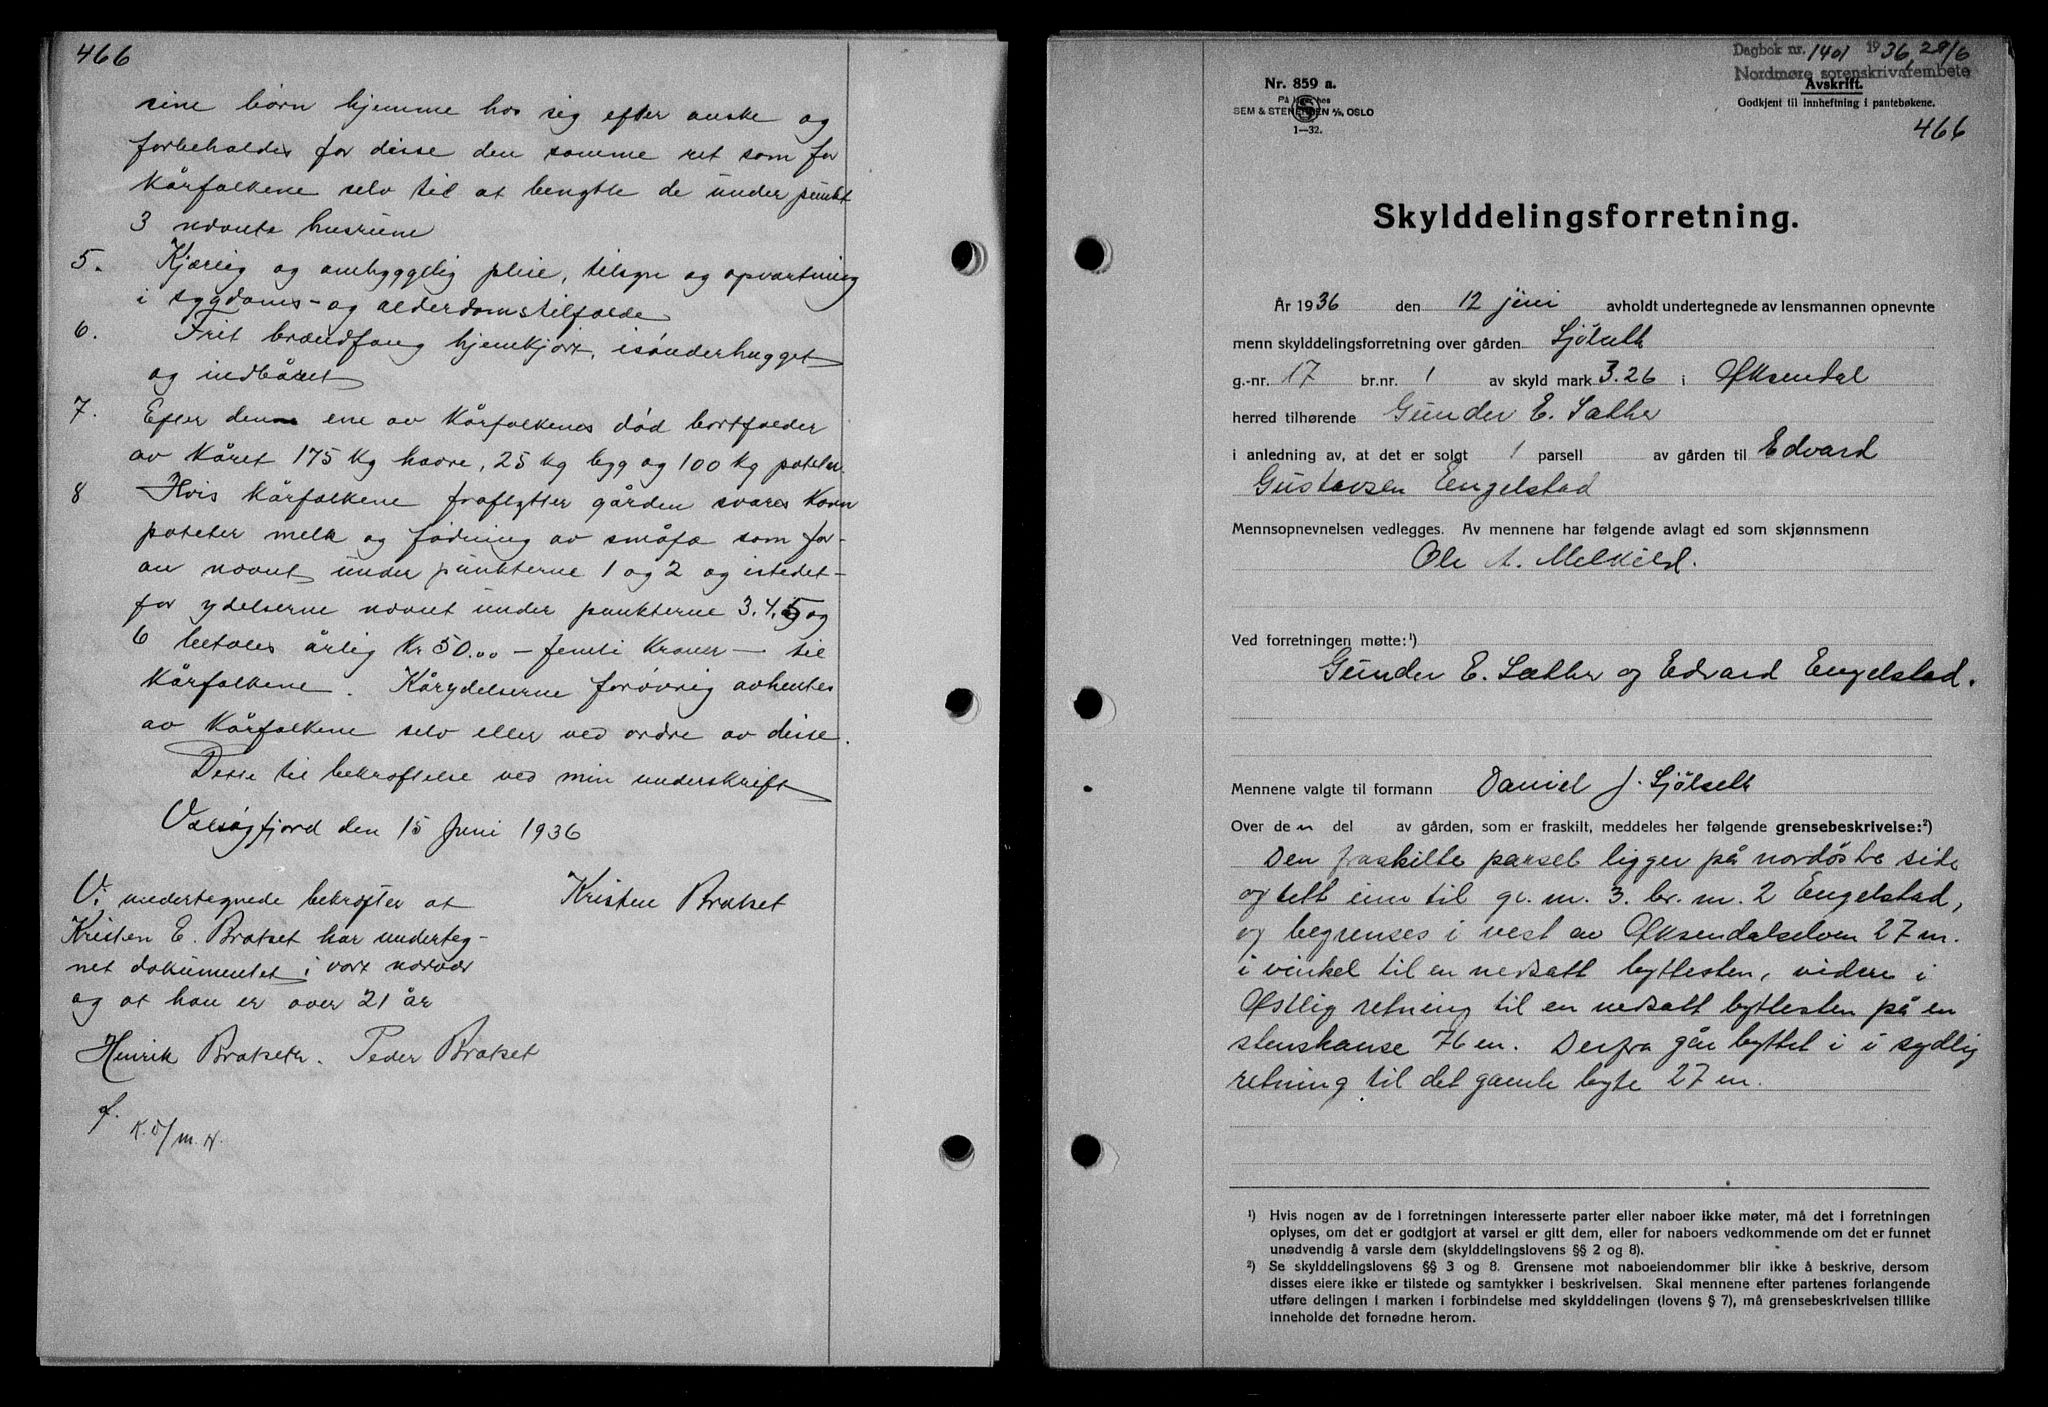 466
sine børn hjemme hos sig efter ønske og
forbeholdes for disse den samme ret som for
kårfolkene selv til at benytte de under punkt
3 nævnte husrum
5. Kjærlig og omhyggelig pleie, tilsyn og opvartning
i sygdoms- og alderdomstilfælde
6. Frit brændfang hjemkjørt, isønderhugget
og indbåret
7. Efter den ene av kårfolkenes død bortfalder
av kåret 175 kg havre, 25 kg bygg og 100 kg poteter.
8 Hvis kårfolkene fraflytter gården svares korn
poteter melk og fødning av småfæ som for-
an nævnt under punkterne 1 og 2 og istedet-
for ydelserne nævnt under punkterne 3.4.5 og
6 betales årlig Kr 50.00 - femti kroner - til
kårfolkene. Kårydelserne forøvrig avhentes
av kårfolkene selv eller ved ordre av disse.
Dette til bekræftelse ved min underskrift
Valsøyfjord den 15 Juni 1936
Kristen Bratset
Vi undertegnede bekræfter at
Kristen E. Bratset har underteg-
net dokumentet i vort nærvær
og at han er over 21 år
Henrik Bratseth. Peder Bratset
K.D/m.N.
Dagbok nr. 1401 1936 29/6
Nordmøre sorenskriverembete
Nr. 859 a.
På lager hos
SEM & STENERSEN A/S, OSLO
1—32.
Avskrift.
Godkjent til innheftning i pantebøkene.
466
Skylddelingsforretning.
År 1936 den 12 juni avholdt undertegnede av lensmannen opnevnte
menn skylddelingsforretning over gården Sjölseth
g.-nr. 17 br.nr. 1 av skyld mark 3.26 i Øksendal
herred tilhørende Gunder E. Sæther
i anledning av, at det er solgt 1 parsell av gården til Edvard
Gustavsen Engelstad
Mennsopnevnelsen vedlegges. Av mennene har følgende avlagt ed som skjønnsmenn
Ole A. Melkild.
Ved forretningen møtte:¹)
Gunder E. Sæther og Edvard Engelstad.
Mennene valgte til formann Daniel J. Sjölseth
Over den del av gården, som er fraskilt, meddeles her følgende grensebeskrivelse:²)
Den fraskilte parsel ligger på nordöstre side
og tett inn til gr. nr. 3. br. nr. 2 Engelstad,
og begrenses i vest av Øksendalselven 27 m.
i vinkel til en nedsatt byttesten, videre i
Østlig retning til en nedsatt byttesten på en
stenskanse 76 m. Derfra går byttet i i sydlig
retning til det gamle byte 27 m.
¹) Hvis nogen av de i forretningen interesserte parter eller naboer ikke møter, må det i forretningen
oplyses, om det er godtgjort at varsel er gitt dem, eller for naboers vedkommende om det er funnet
unødvendig å varsle dem (skylddelingslovens §§ 2 og 8).
²) Se skylddelingslovens §§ 3 og 8. Grensene mot naboeiendommer blir ikke å beskrive, dersom
disses eiere ikke er tilstede og samtykker i beskrivelsen. Skal mennene efter partenes forlangende
utføre delingen i marken i forbindelse med skylddelingen (lovens § 7), må grensebeskrivelsen tillike
inneholde det fornødne herom.